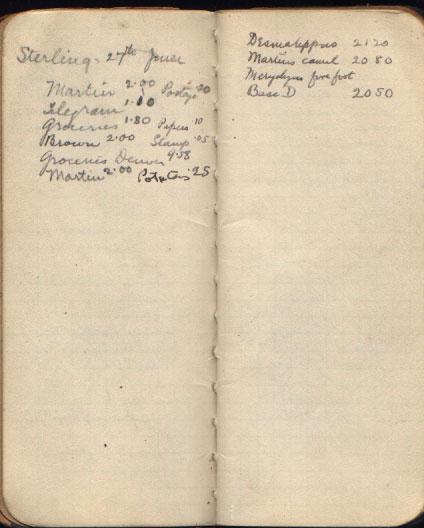 Sterling - 27th June
Martin 2.00 Postage .20
Telegram 1.10
Groceries 1.80 Papers .10
Brown 2.00 Stamp .05
Groceries Denver 9.58
Martin 2.00 Potatoes .25
2120
Martins camel 2080
fore foot
Base D 2050